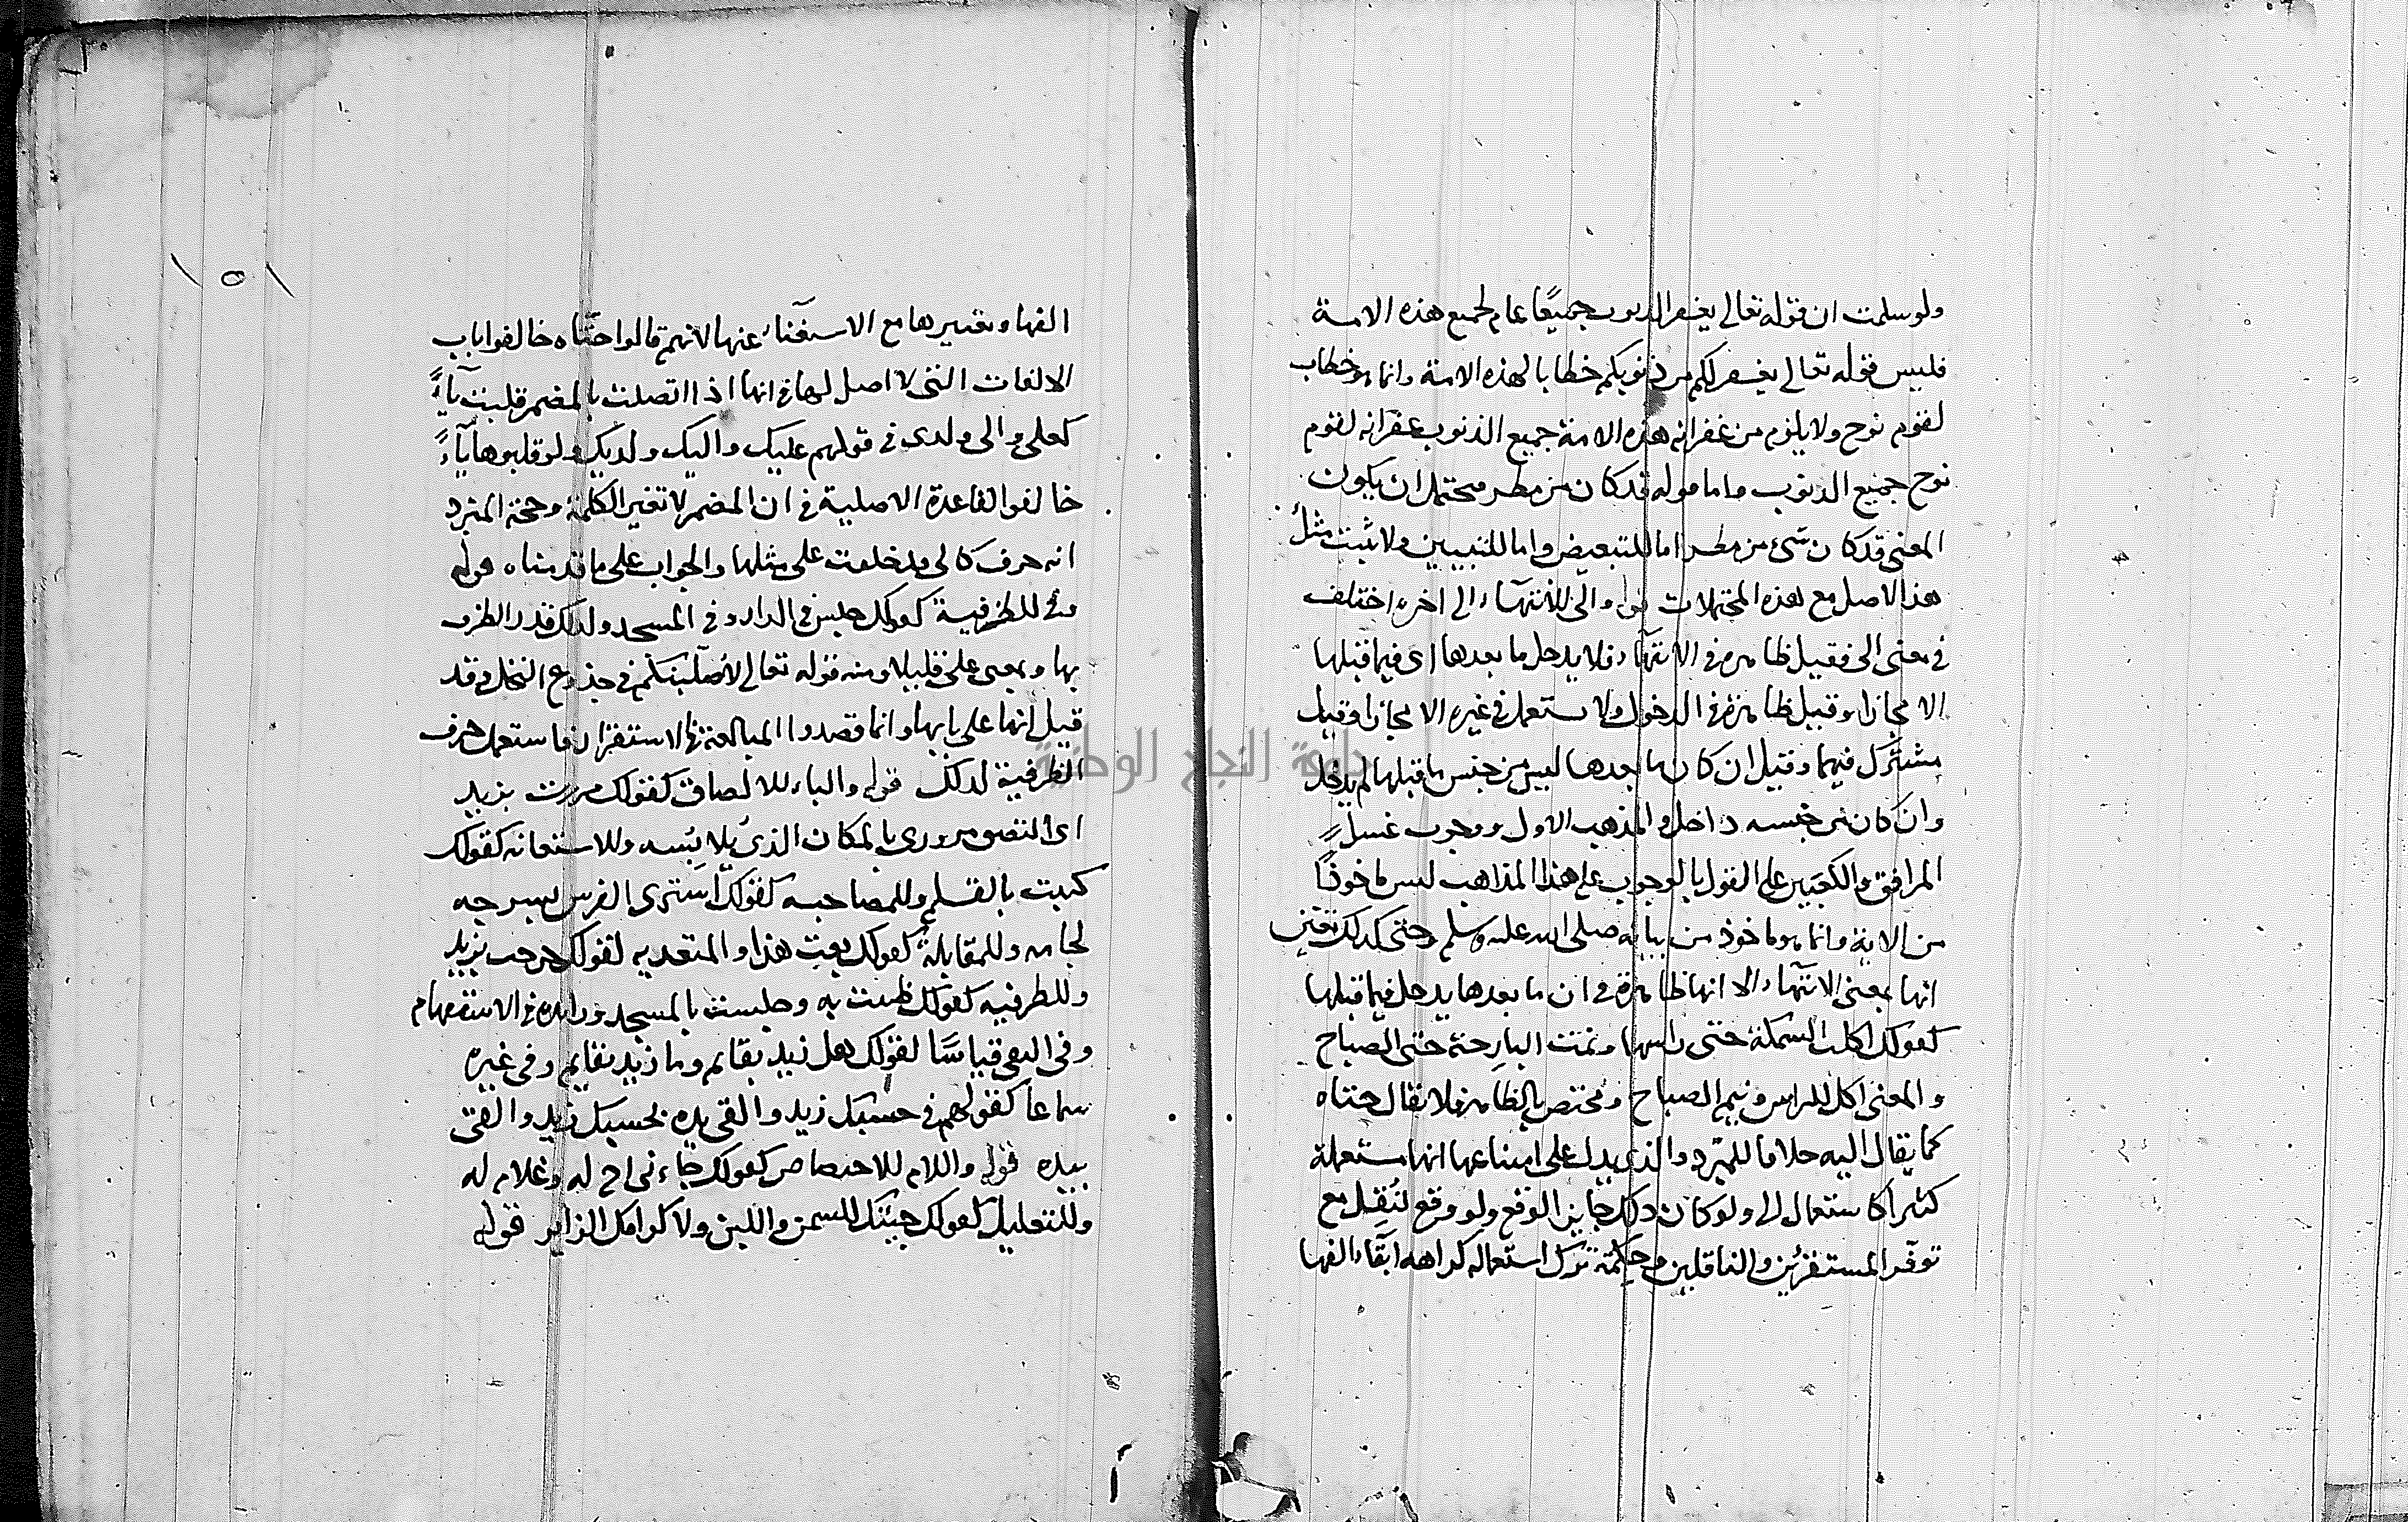 ولو سلمت ان قوله تعالى يغفر الذنوب جميعًا عام لجميع هذه الامة
فليس قوله تعالى يغفر لكم من ذنوبكم خطابا لهذه الامة وانما هو خطاب
لقوم نوح ولا يلزم من غفرانه هذه الامة جميع الذنوب غفرانه لقوم
نوح جميع الذنوب واما قوله قد كان من مطر محتمل ان يكون
المعنى قد كان شئ من مطر اما للتبعيض واما للتبيين ولا يثبت مثل
هذا الاصل مع هذه المحتملات قوله والى للانتهاء الى اخره اختلف
في معنى الى فقيل ظاهرة في الانتهاء فلا يدخل ما بعدها اى فيما قبلها
الا مجازا وقيل ظاهرة في الدخول ولا تستعمل في غيره الا مجازا وقيل
مشترك فيهما وقيل ان كان ما بعدها ليس من جنس ما قبلها لم يدخل
وان كان من جنسه داخل والمذهب الاول ووجوب غسل
المرافق والكعبين على القول بالوجوب على هذا المذاهب ليس ماخوذًا
من الاية وانما هو ماخوذ من بيانه صلى الله عليه وسلم وحتى كذلك
انها بمعنى الانتهاء الا انها ظاهرة في ان ما بعدها يدخل فيما قبلها
كقولك اكلت السمكة حتى راسها ونمت البارحة حتى الصباح
والمعنى اكل الراس ونيم الصباح ومختص بالظاهر فلا يقال حتاه
كما يقال اليه خلافا للمبرد والذي يدل على امتناعها انها مستعملة
كثيرا كاستعمال الى ولو كان ذلك جايز الوقع ولو وقع لنُقِل مع
توفر المستقرئين والناقلين وحكمة ترك استعماله كراهه ابقاء الفها
١٥١
الفها وتغييرها مع الاستغناء عنها لانهم قالوا حتاه خالفوا باب
الالفات التي لا اصل لها فانها اذا اتصلت بالمضمر قلبت ياءً
كعلى والى ولدى في قولهم عليك واليك ولديك ولو قلبوها ياءً
خالفوا القاعدة الاصلية في ان المضمر لا تغير الكلمة وحجة المبرد
انه حرف كالى فدخلت على مثلها والجواب على ما قدمناه قوله
وفي للظرفية كقولك جلس في الدار وفي المسجد ولذلك قدر الظرف
بها وبمعنى على قليلا ومنه قوله تعالى لأصلبنكم في جذوع النخل وقد
قيل انها على بابها وانما قصدوا المبالغة في الاستقرار فاستعمل حرف
الظرفية لذلك قوله والباء للالصاق كقولك مررت بزيد
اى التصق مروري بالمكان الذي يلابسه وللاستعانه كقولك
كتبت بالقلم وللمصاحبه كقولك اشترى الفرس بسرجه
لجامه وللمقابلة كقولك بعت هذا والمتعديه كقولك خرجت بزيد
وللظرفيه كقولك ظننت به وجلست بالمسجد وزايدة في الاستفهام
وفي النفى قياسًا كقولك هل زيد بقايم وما زيد بقايم وفي غيره
سماعا كقولهم في حسبك زيد والقى يده بحسبك زيد والقى
بيده قوله واللام للاختصاص كقولك جاءني اخ له وغلام له
وللتعليل كقولك جيتك للسمن واللبن ولاكرامك الزاير قوله
جامعة النجاح الوطنية